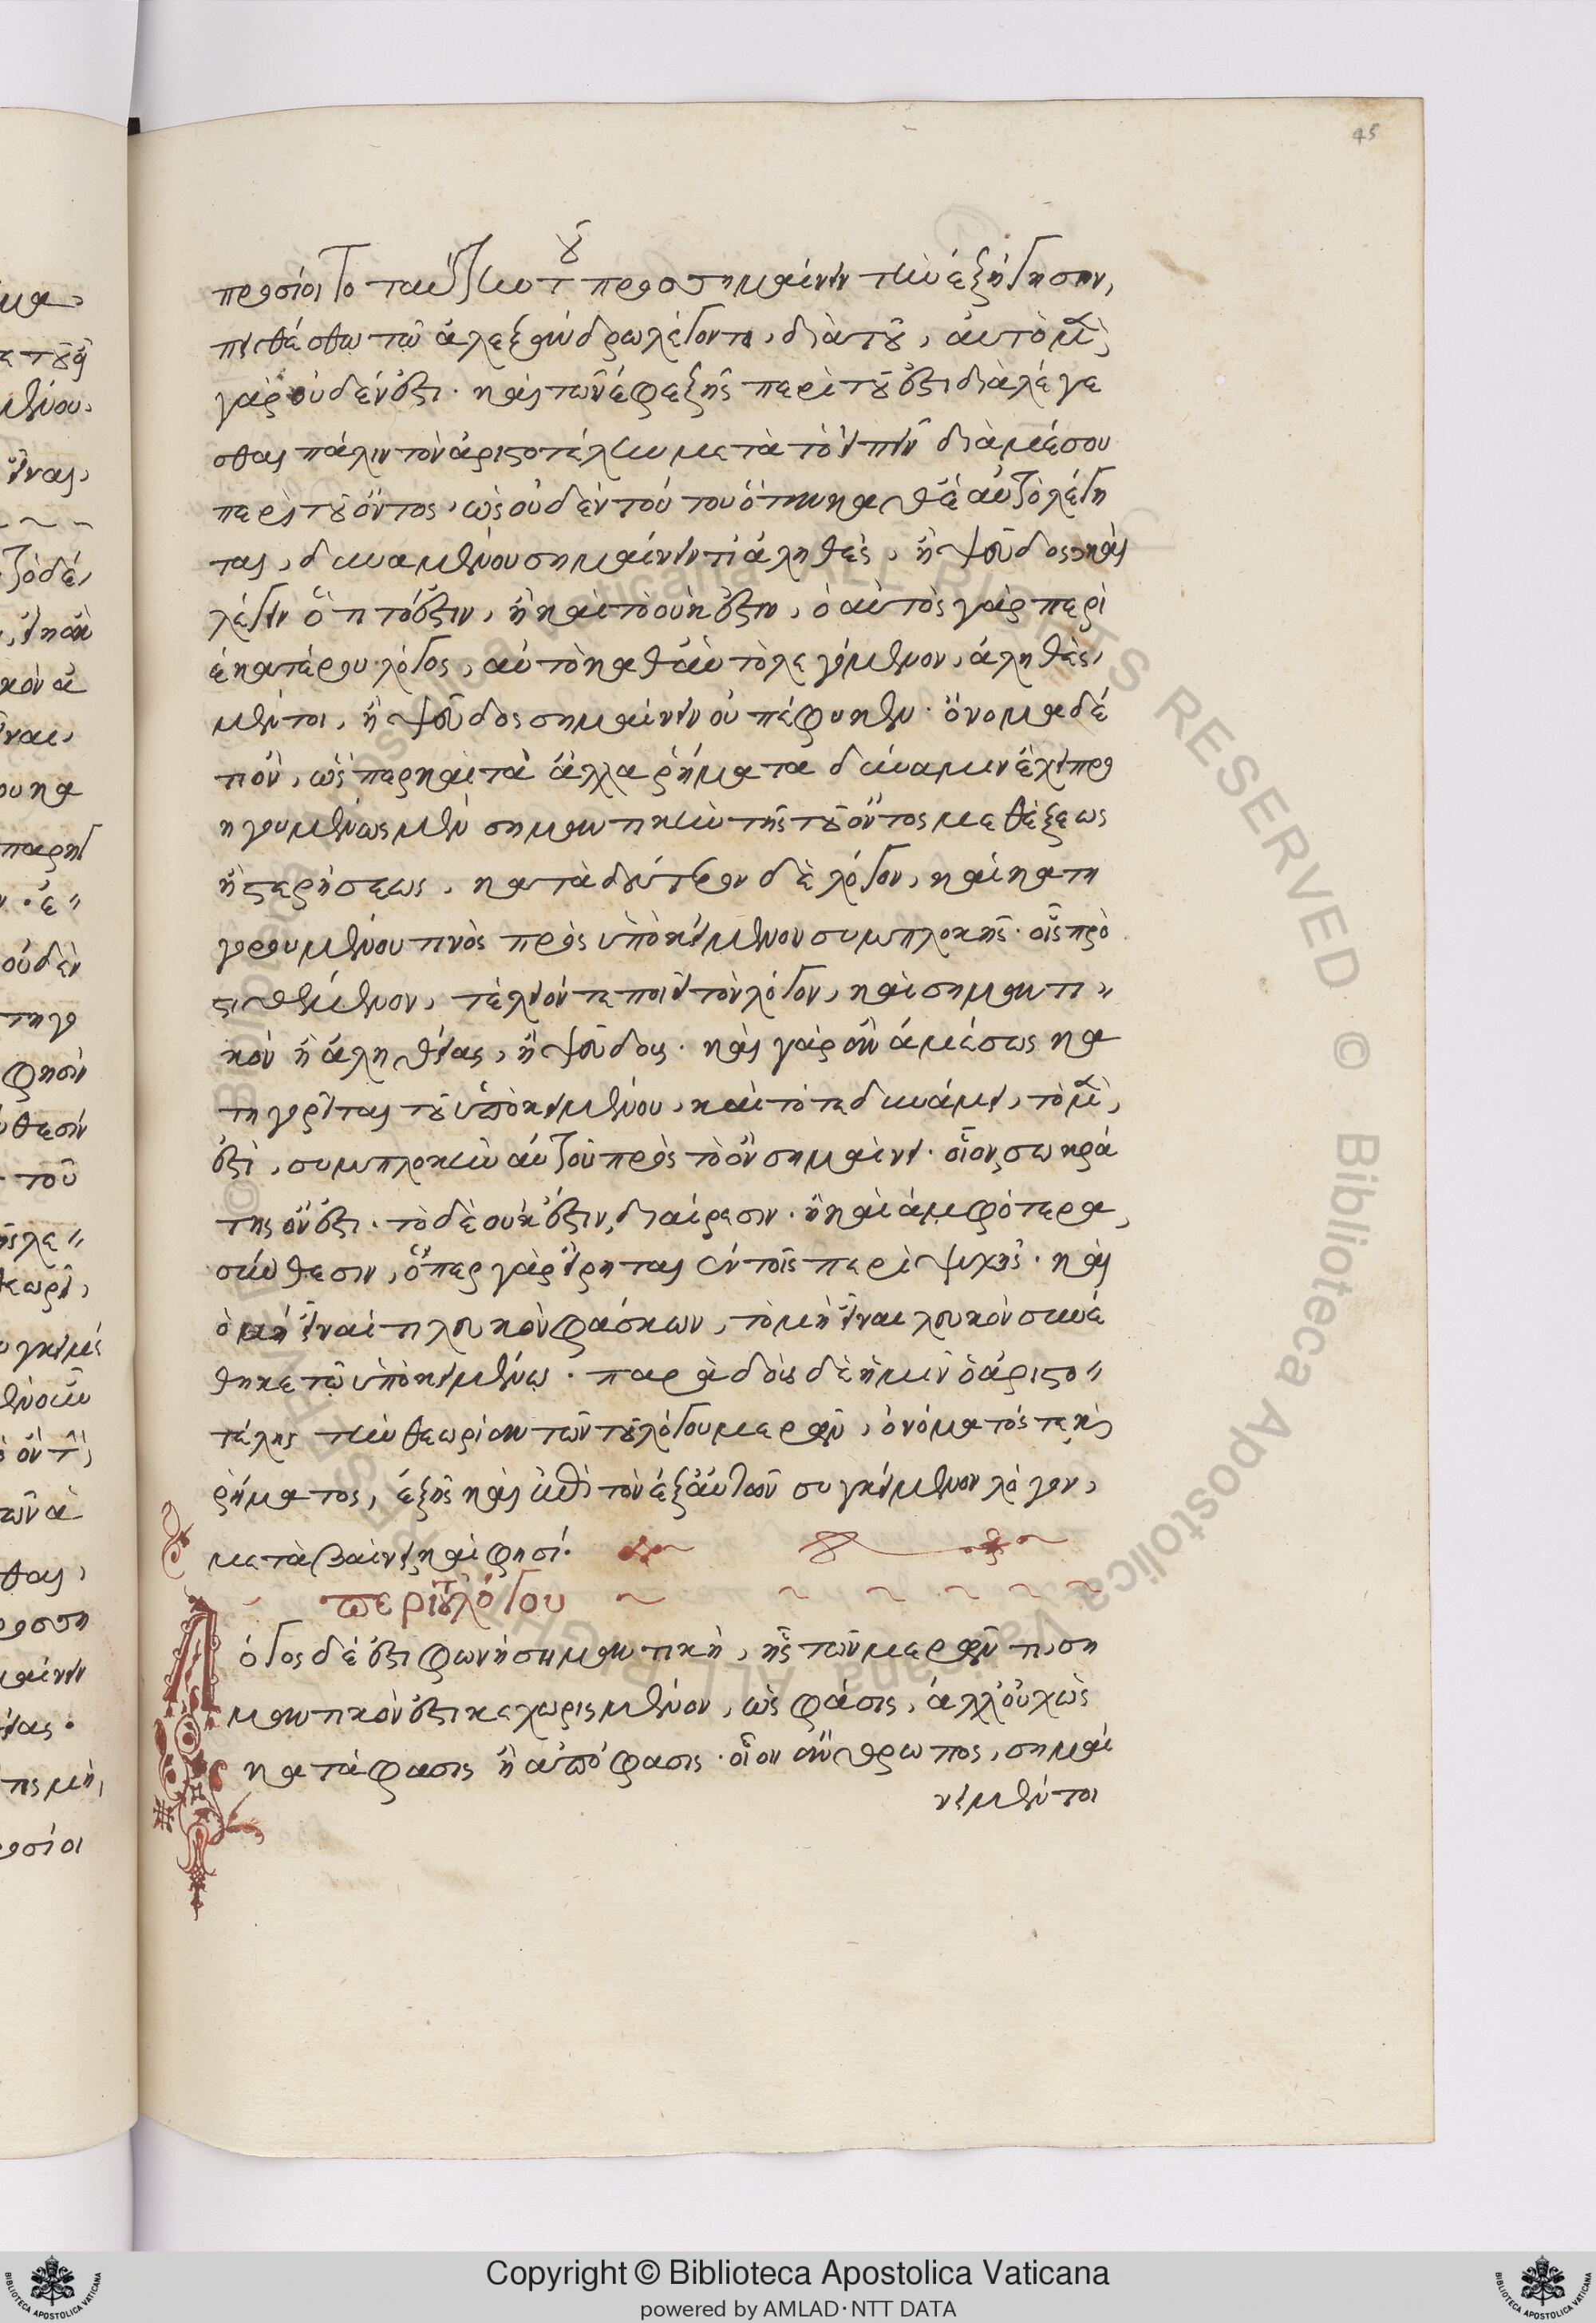 45
προσίοιτο ταύτην τοῦ προσημαίνειν τὴν ἐξήγησιν,
πειθέσθω τῷ ἀλεξάνδρω λέγοντι, διὰ τοῦ, αὐτὸ μὲν
γὰρ οὐδέν ἐστι. καὶ τῶν ἐφεξῆς περὶ τοῦ ἔστι διαλέγε
σθαι πάλιν τὸν ἀριστοτέλην μετὰ τὸ εἰπεῖν διὰ μέσου
περὶ τοῦ ὄντος, ὡς οὐδὲν τούτου ὅταν καθ' ἑαυτὸ λέγη
ται, δυναμένου σημαίνειν τί ἀληθὲς, ἢ ψεῦδος καὶ
λέγειν ὅτι τὸ ἔστιν, ἢ καὶ τὸ οὐκ ἔστιν, ὁ αὐτὸς γὰρ περὶ
ἑκατέρου λόγος, αὐτὸ καθ' αὑτὸ λεγόμενον, ἀληθὲς,
μέντοι, ἢ ψεῦδος σημαίνειν οὐ πέφυκεν. ὄνομα δέ
τι ὂν, ὥσπερ καὶ τὰ ἄλλα ῥήματα δύναμιν ἔχει προ
ηγουμένως μὲν σημαντικὴν τῆς τοῦ ὄντος μεθέξεως
ἢ στερήσεως, κατὰ δεύτερον δὲ λόγον, καὶ κατη
γορουμένου τινὸς πρὸς ὑποκείμενον συμπλοκῆς. οἷς προ
στιθέμενον, τέλειόν τε ποιεῖ τὸν λόγον, καὶ σημαντι"
κὸν ἢ ἀληθείας, ἢ ψεύδους. καὶ γὰρ ἂν ἀμέσως κα
τηγορῆται τοῦ ὑποκειμένου, καὶ τότε δυνάμει, τὸ μὲν,
ἐστὶ, συμπλοκὴν αὐτοῦ πρὸς τὸ ὂν σημαίνει. οἷον, σωκρά
της ὄν ἐστι. τὸ δὲ οὐκ ἔστιν, διαίρεσιν. ἢ καὶ ἀμφότερα,
σύνθεσιν, ὅπερ γὰρ εἴρηται ἐν τοῖς περὶ ψυχῆς. καὶ
ὁ μὴ εἶναί τι λευκὸν φάσκων, τὸ μὴ εἶναι λευκὸν συνέ
θηκε τῷ ὑποκειμένῳ. παραδοὺς δὲ ἡμῖν ὁ ἀριστο"
τέλης τὴν θεωρίαν τῶν τοῦ λόγου μερῶν, ὀνόματός τε καὶ
ῥήματος, ἑξῆς καὶ ἐπὶ τὸν ἐξ αὐτῶν συγκείμενον λόγον,
μεταβαίνει, καὶ φησί.
περὶ τοῦ λόγου
Λόγος δέ ἐστι φωνὴ σημαντικὴ, ἧς τῶν μερῶν τι, ση
μαντικὸν ἐστι κεχωρισμένον, ὡς φάσις, ἀλλ' οὐχ ὡς
κατάφασις ἢ ἀπόφασις. οἷον ἄνθρωπος, σημαί
νει μέντοι
Copyright © Biblioteca Apostolica Vaticana
powered by AMLAD·NTT DATA